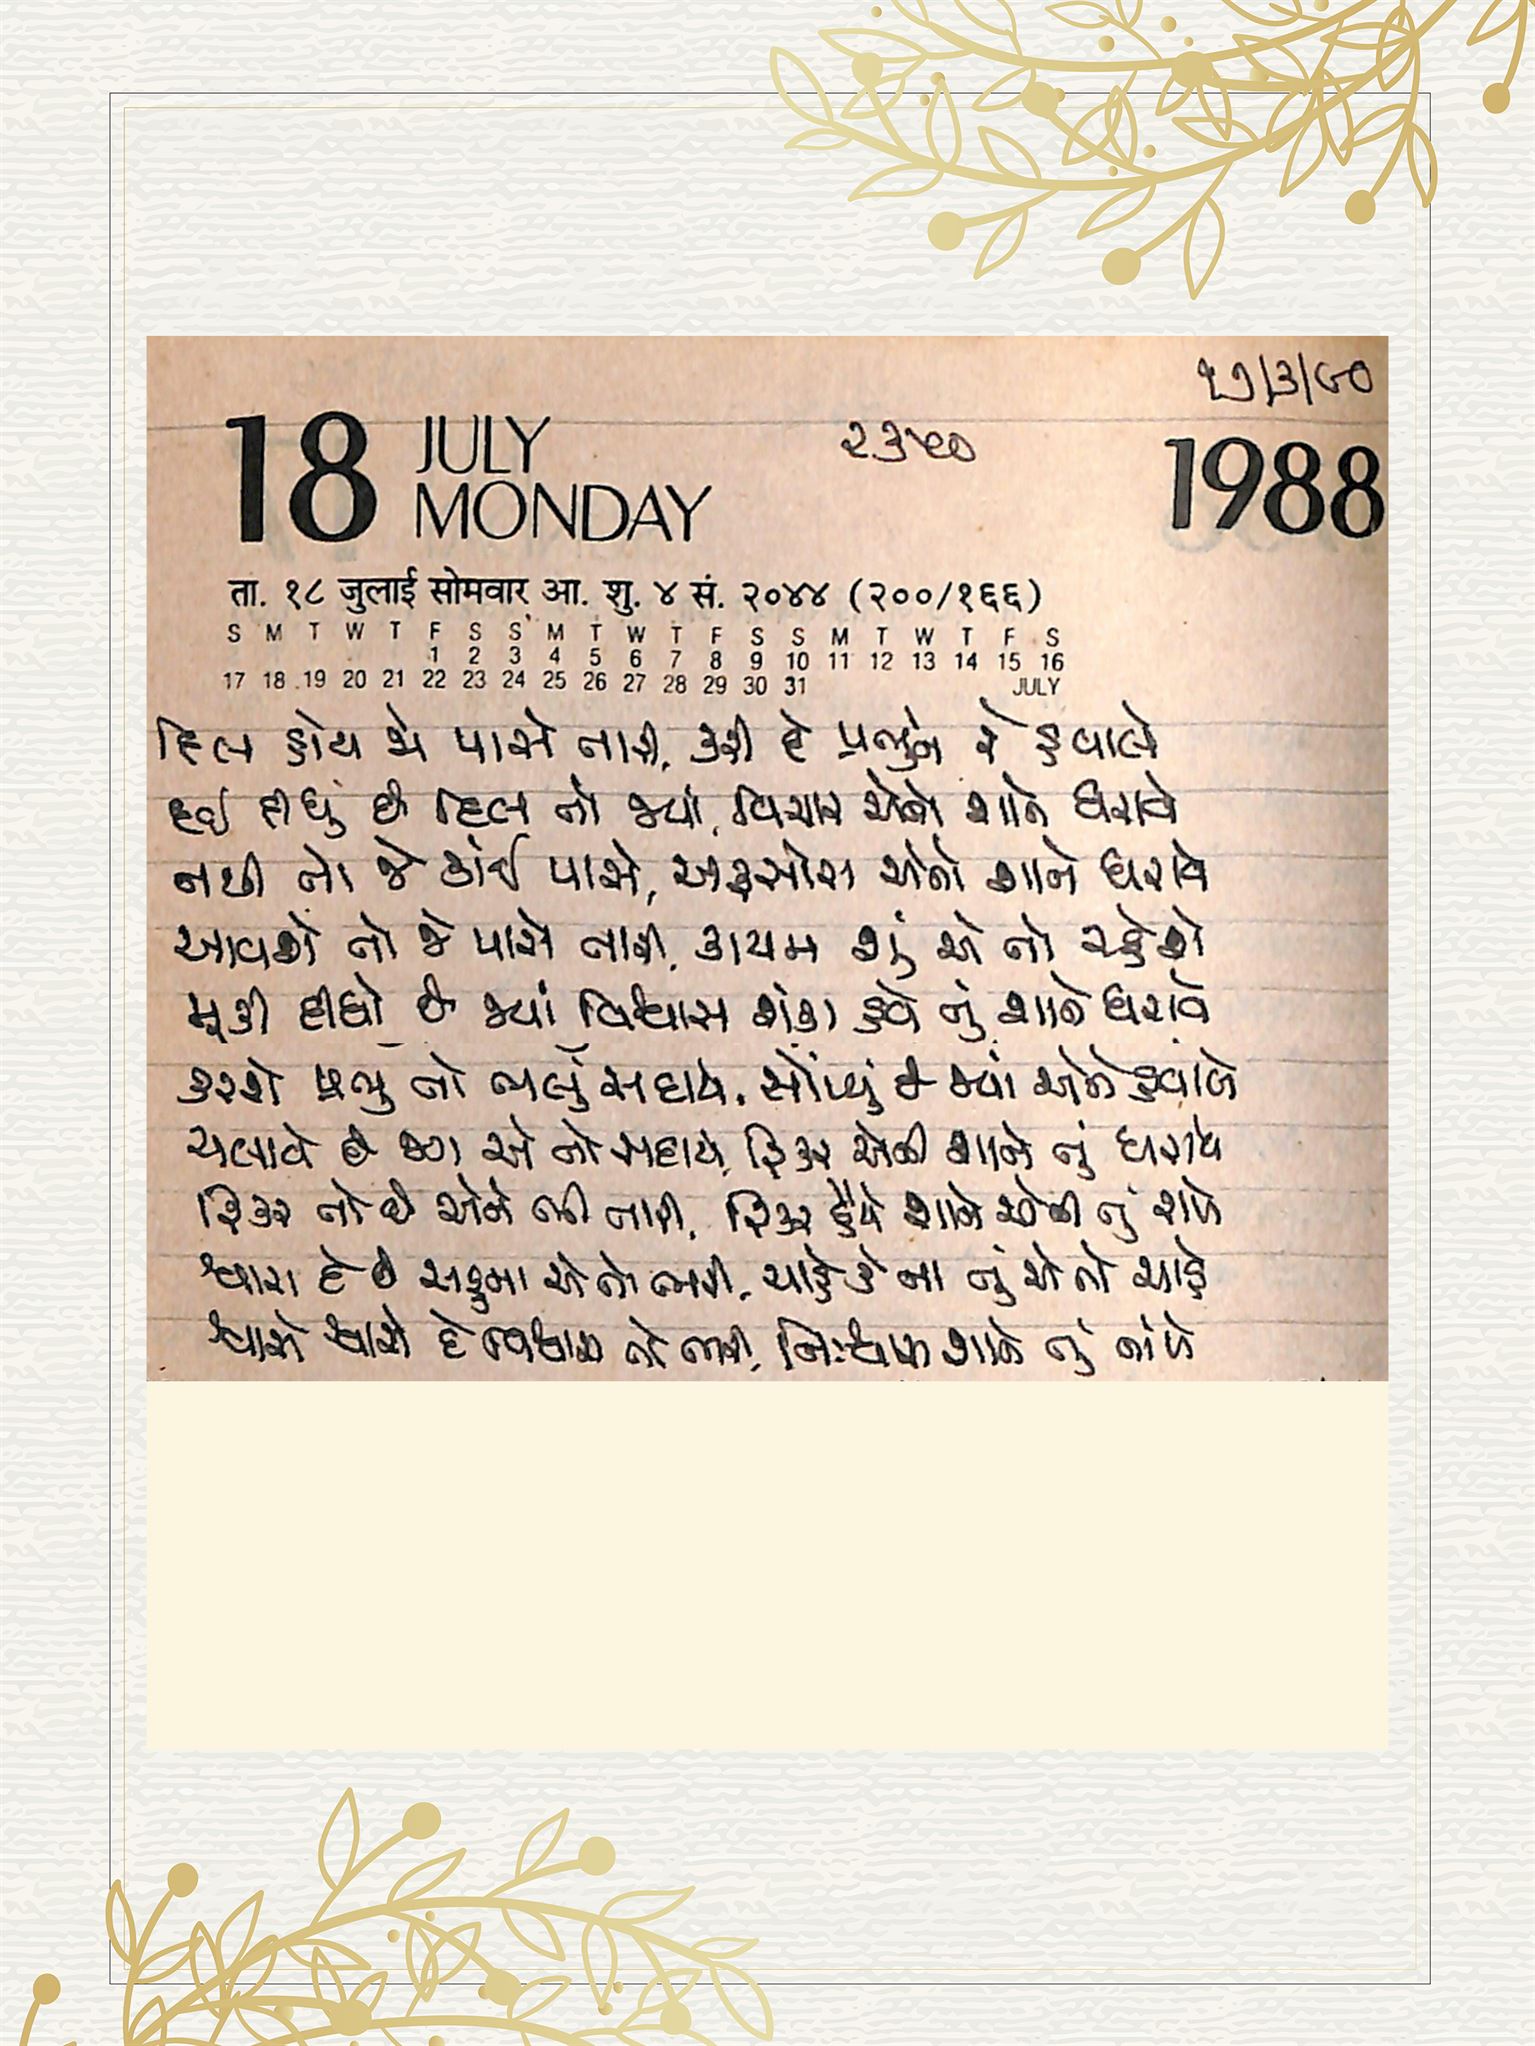 ૧૭/૩/૯૦
18 JULY 1988
MONDAY
૨૩૯૦
ता. १८ जुलाई सोमवार आ. शु. ४ सं. २०४४ (२००/१६६)
S M T W T F S S M T W T F S S M T W T F S
1 2 3 4 5 6 7 8 9 10 11 12 13 14 15 16
17 18 19 20 21 22 23 24 25 26 27 28 29 30 31 JULY
દિલ હોય જો પાસે તારી, કરી દે પ્રભુને રે હવાલે
દઈ દીધું છે દિલ તો જ્યાં, વિચાર એનો શાને ધરાવે
નથી તો જે કાંઈ પાસે, અફસોસ એનો શાને ધરાવે
આવશે તો જે પાસે તારી, કાયમ શું એ તો રહેશે
મૂકી દીધો છે જ્યાં વિશ્વાસ શંકા હવે તું શાને ધરાવે
કરશે પ્રભુ તો ભલું સદાયે, સોંપ્યું છે જ્યાં એને હવાલે
ચલાવે છે જગ એ તો સદાય, ફિકર એની શાને તું ધરાવે
ફિકર તો છે એને ભી તારી, ફિકર હૈયે શાને એની તું રાખે
શ્વાસ દે છે સહુમાં એ તો ભરી, ચાહે કે ના તું એ તો ચાહે
શ્વાસે શ્વાસે દે વિશ્વાસ તો ભરી, નિઃશ્વાસ શાને તું નાંખે